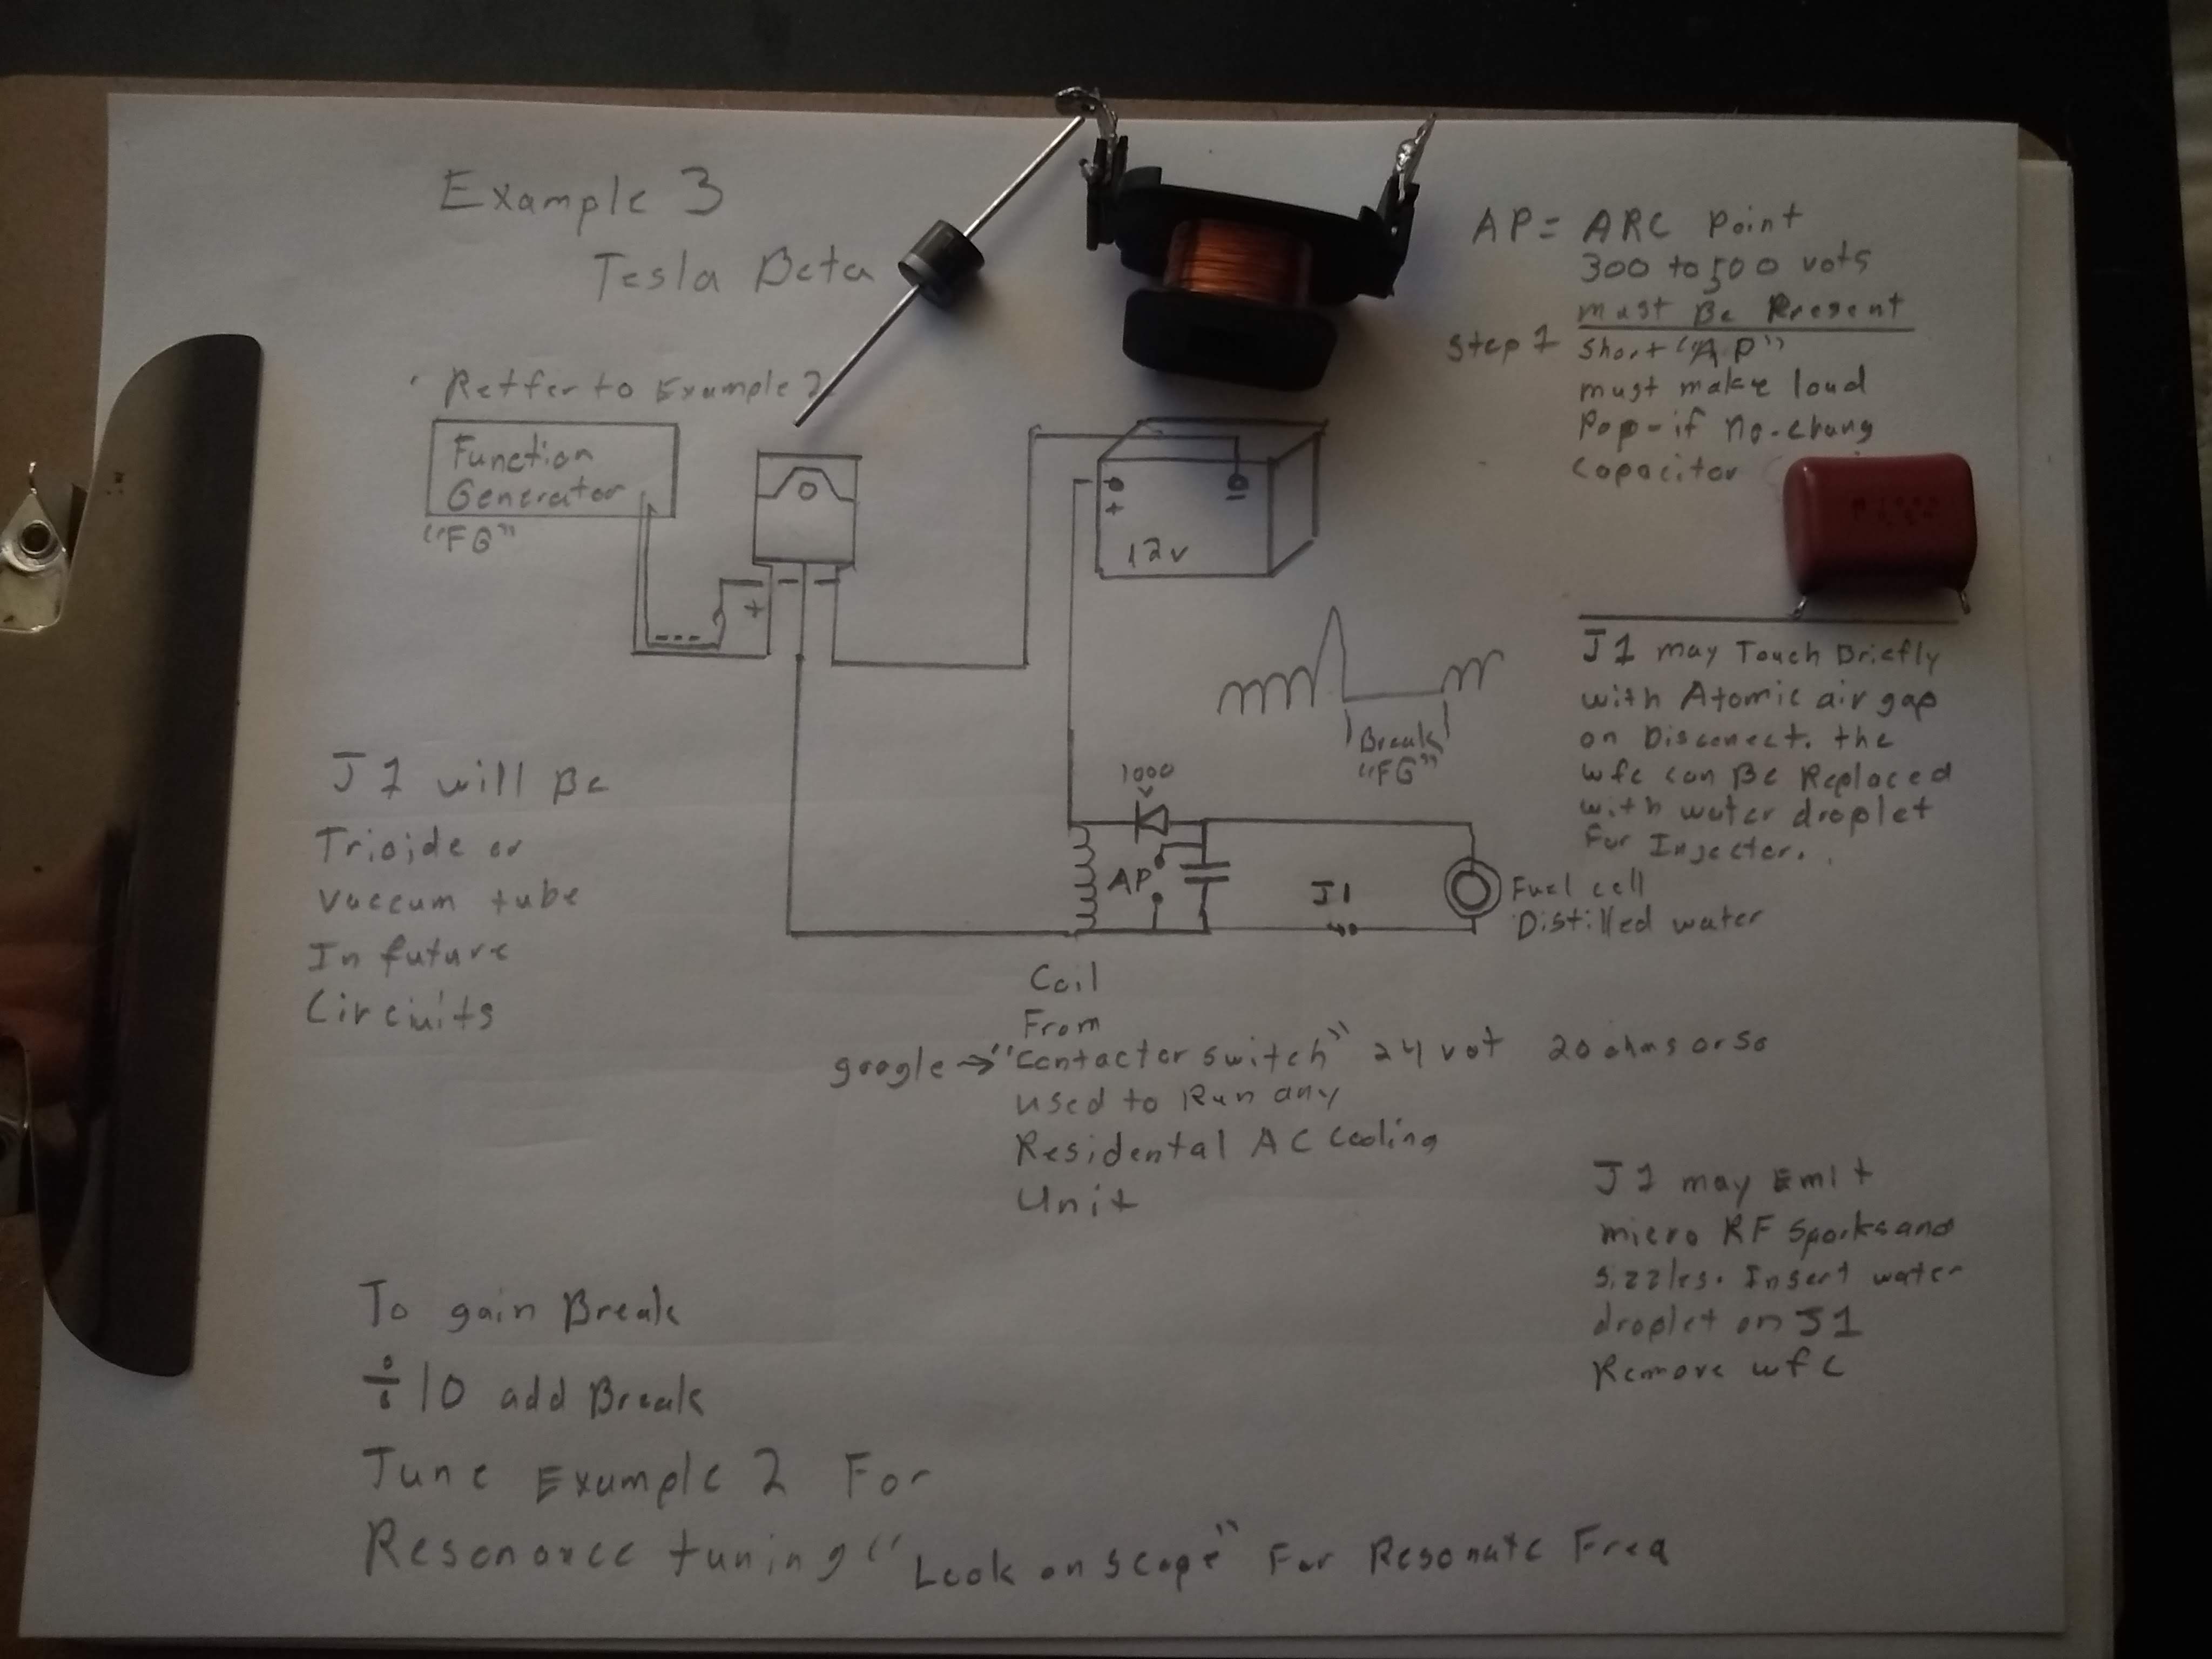 Example 3
Tesla Beta
Retfer to Example 2
Function
Generator
"FG"
+
+
12v
AP = ARC Point
300 to 500 vots
must Be Present
Step 1 Short "AP"
must make loud
Pop - if no - chang
capacitor
J1 may Touch Briefly
with Atomic air gap
on Disconect. the
wfc can Be Replaced
with water droplet
For Injector.
Break
"FG"
1000
V
AP
J1
Fuel cell
Distilled water
J1 will Be
Trioide or
vaccum tube
In future
Circiuits
Coil
From
google → "Contactor switch" 24 vot 20 ohms or so
used to Run any
Residental AC Cooling
Unit
J1 may Emit
micro RF Sparks and
sizzles. Insert water
droplet on J1
Remove wfc
To gain Break
÷ 10 add Break
Tune Example 2 For
Resonoxce tuning "Look on scope" For Resonate Freq